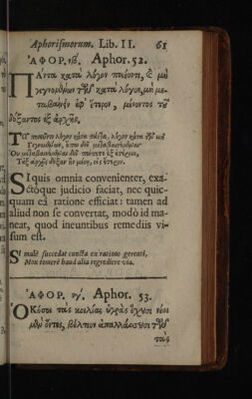 Aphorismorum. Lib. II. 61
ἈΦΟΡ. νβ. Aphor. 52.
Πάντα κατὰ λόγον ποιέοντι, ϗ μὴ
γιγνομένων τῶν κατὰ λόγον, μὴ με-
ταβαίνειν ἐφ' ἕτερον, μένοντος τοῦ
δόξαντος ἐξ ἀρχῆς.
Si quis omnia convenienter, exa-
ctóque judicio faciat, nec quic-
quam eâ ratione efficiat: tamen ad
aliud non se convertat, modò id ma-
neat, quod ineuntibus remediis vi-
sum est.
Si malè succedat cuncta ex ratione gerenti,
Mox temerè haud aliâ regrediere viâ.
ἈΦΟΡ. νγ. Aphor. 53.
Ὁκόσοι τὰς κοιλίας ὑγρὰς ἔχουσι νέοι
μὲν ὄντες, βέλτιον ἀπαλλάσσουσι τῶν
τὰς